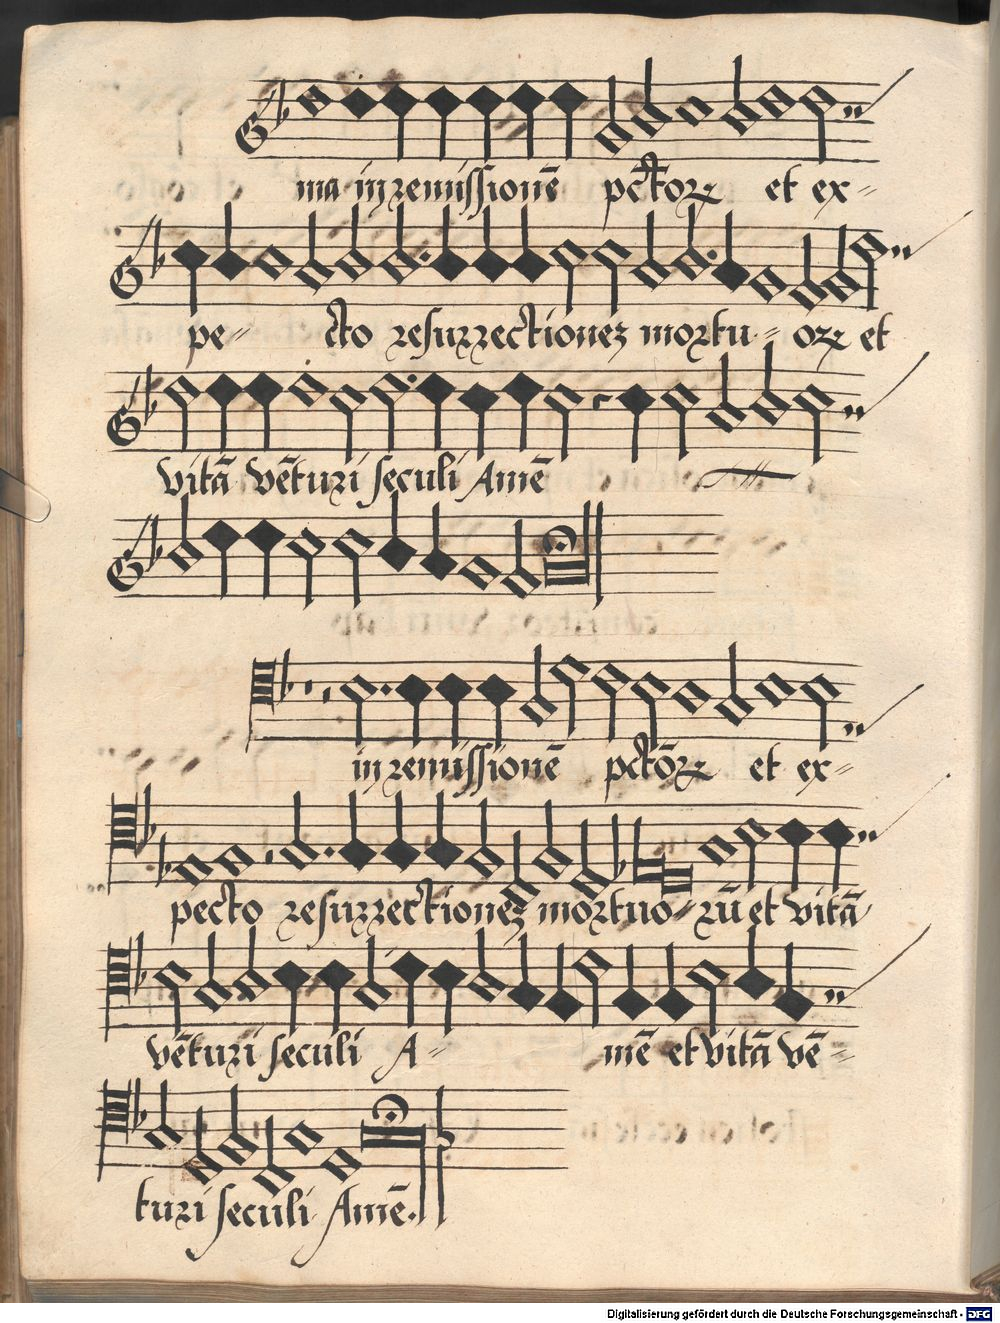 ma in remissionē pctoꝝ et ex⸗
pe⸗ cto resurrectionez mortu⸗ oꝝ et
vitā vēturi seculi Amē
in remissionē pctōꝝ et ex⸗
pecto resurrectionez mortuo⸗ rū et vitā
vēturi seculi A⸗ mē et vitā vē⸗
turi seculi Amē.
Digitalisierung gefördert durch die Deutsche Forschungsgemeinschaft - DFG